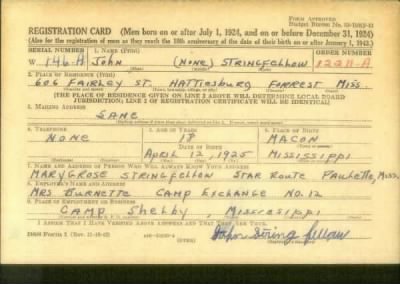 Form Approved
REGISTRATION CARD—(Men born on or after July 1, 1924, and on or before December 31, 1924)
(Also for the registration of men as they reach the 18th anniversary of the date of their birth on or after January 1, 1943.)
SERIAL NUMBER 1. Name (Print) ORDER NUMBER
W 146-A John (None) Stringfellow 12211-A
2. Place of Residence (Print)
606 Fairley St. Hattiesburg Forrest Miss.
[THE PLACE OF RESIDENCE GIVEN ON LINE 2 ABOVE WILL DETERMINE LOCAL BOARD
JURISDICTION; LINE 2 OF REGISTRATION CERTIFICATE WILL BE IDENTICAL]
3. Mailing Address
Same
4. Telephone 5. Age in Years 6. Place of Birth
None 18 Macon
Date of Birth
April 12, 1925 Mississippi
7. Name and Address of Person Who Will Always Know Your Address
Mary Grose Stringfellow Star Route Paulette, Miss.
8. Employer's Name and Address
Mrs Burnette Camp Exchange No. 12
9. Place of Employment or Business
Camp Shelby, Mississippi
I Affirm That I Have Verified Above Answers and That They Are True.
(OVER)
John String fellow